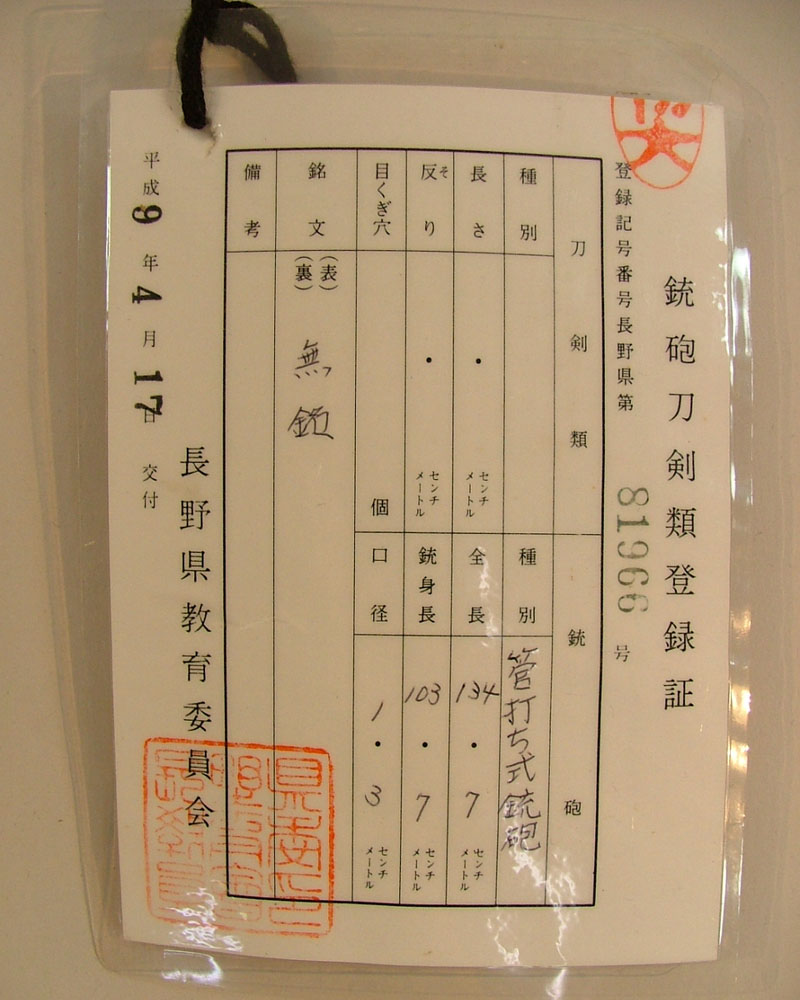 銃砲刀剣類登録証
登録記号番号長野県第 81966 号
刀剣類
種別
長さ ・ センチメートル
反り そり ・ センチメートル
目くぎ穴 個
銃砲
種別 管打ち式銃砲
全長 134・7 センチメートル
銃身長 103・7 センチメートル
口径 1・3 センチメートル
銘文 (表)
(裏) 無銘
備考
長野県教育委員会
平成9年4月17日交付